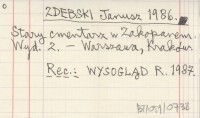 ZDEBSKI Janusz 1986.
Stary cmentarz w Zakopanem.
Wyd. 2. – Warszawa, Kraków
Rec.: WYSOGLĄD R. 1987.